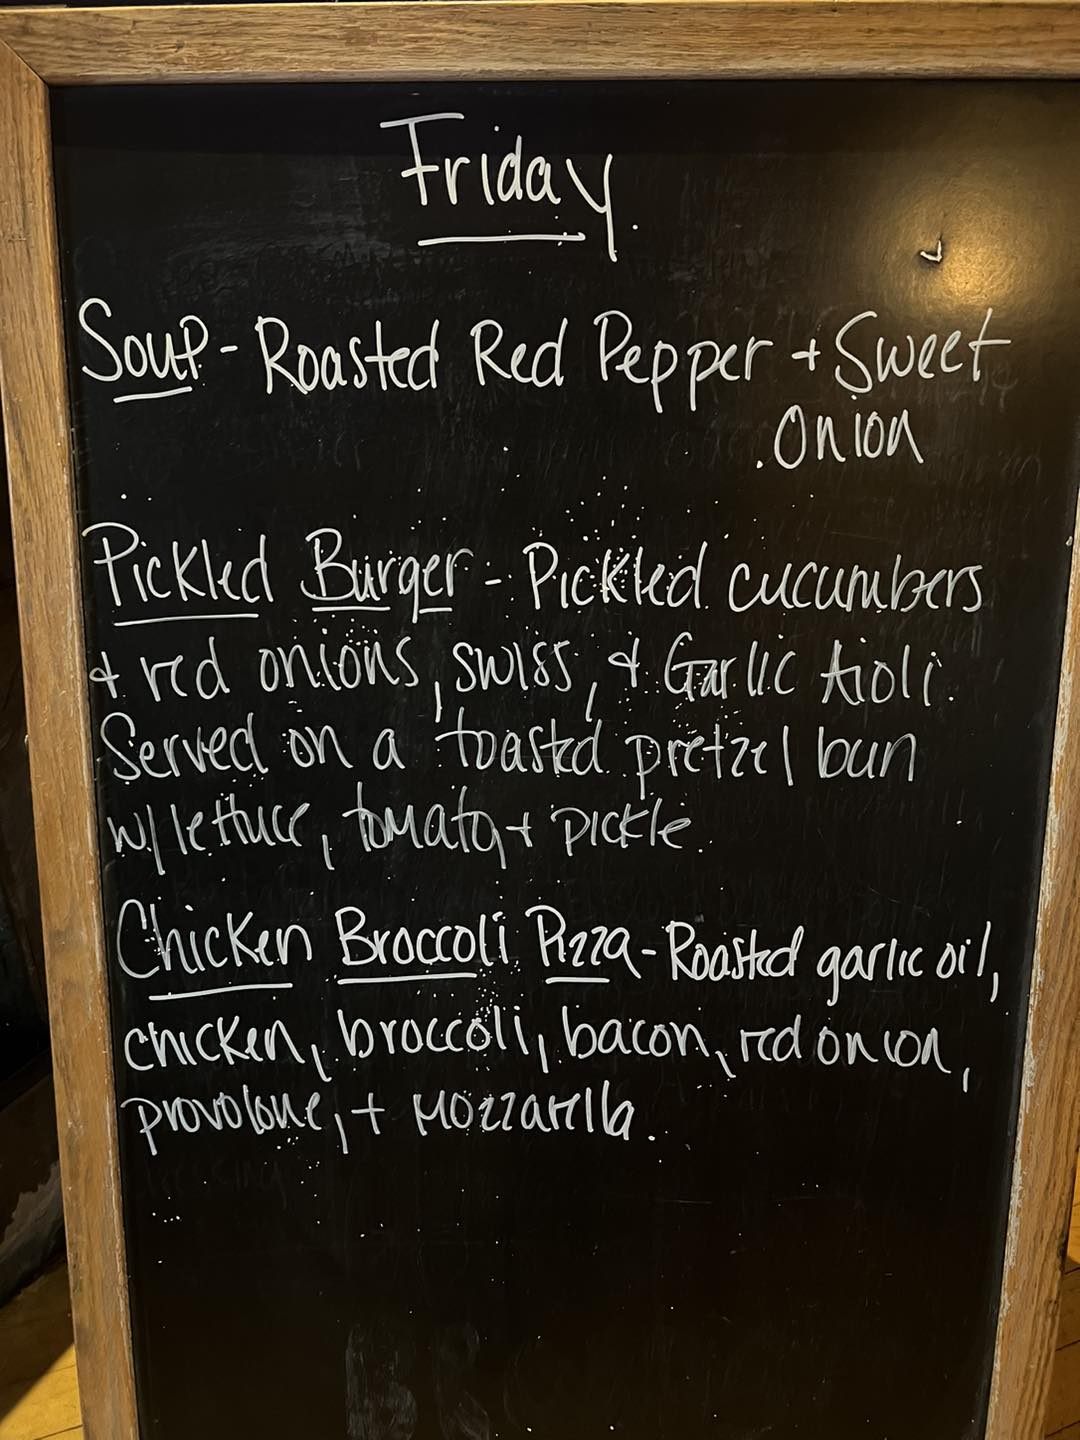 Friday.
Soup - Roasted Red Pepper + Sweet
Onion
Pickled Burger - Pickled cucumbers
+ red onions, swiss, + Garlic Aioli.
Served on a toasted pretzel bun
w/ lettuce, tomato, + pickle.
Chicken Broccoli Pizza - Roasted garlic oil,
chicken, broccoli, bacon, red onion,
provolone, + Mozzarella.